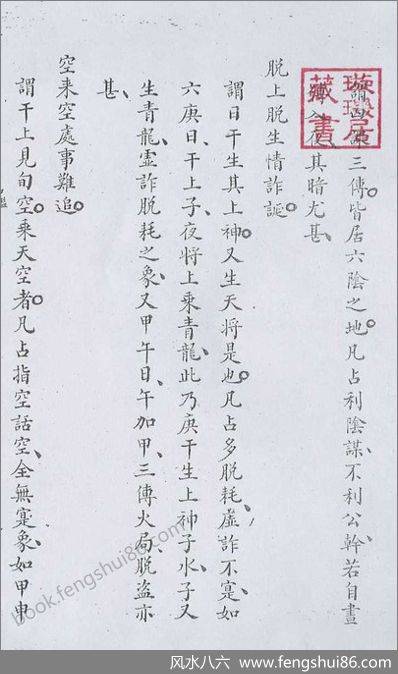 謂四課三傳皆居六陰之地。凡占利陰謀、不利公幹若自晝
入夜其暗尤甚、
脱上脱生情詐誕。
謂日干生其上神。又生天將是也。凡占多脱耗、虛詐不寔、如
六庚日、干上子、夜將上乘青龍、此乃庚干生上神子水、子又
生青龍、虛詐脱耗之象、又甲午日、午加甲、三傳火局、脱盜亦
甚、
空来空處事難追。
謂干上見旬空。乘天空者。凡占指空話空、全無寔象、如甲申
璇璣居藏書
book.fengshui86.com
风水八六 www.fengshui86.com